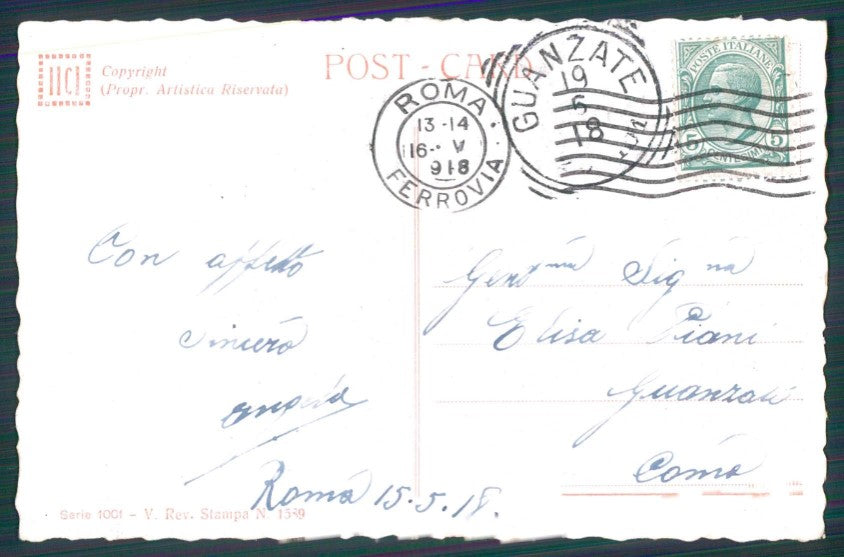 IICI
Copyright
(Propr. Artistica Riservata)
POST - CARD
ROMA
13-14
16 - V
918
FERROVIA
GUANZATE
19
5
18
POSTE ITALIANE
5 CENTESIMI 5
Con affetto
sincero
Roma 15.5.18.
Gent.ma Sig.na
Elisa Piani
Guanzate
Como
Serie 100I - V. Rev. Stampa N. 1539